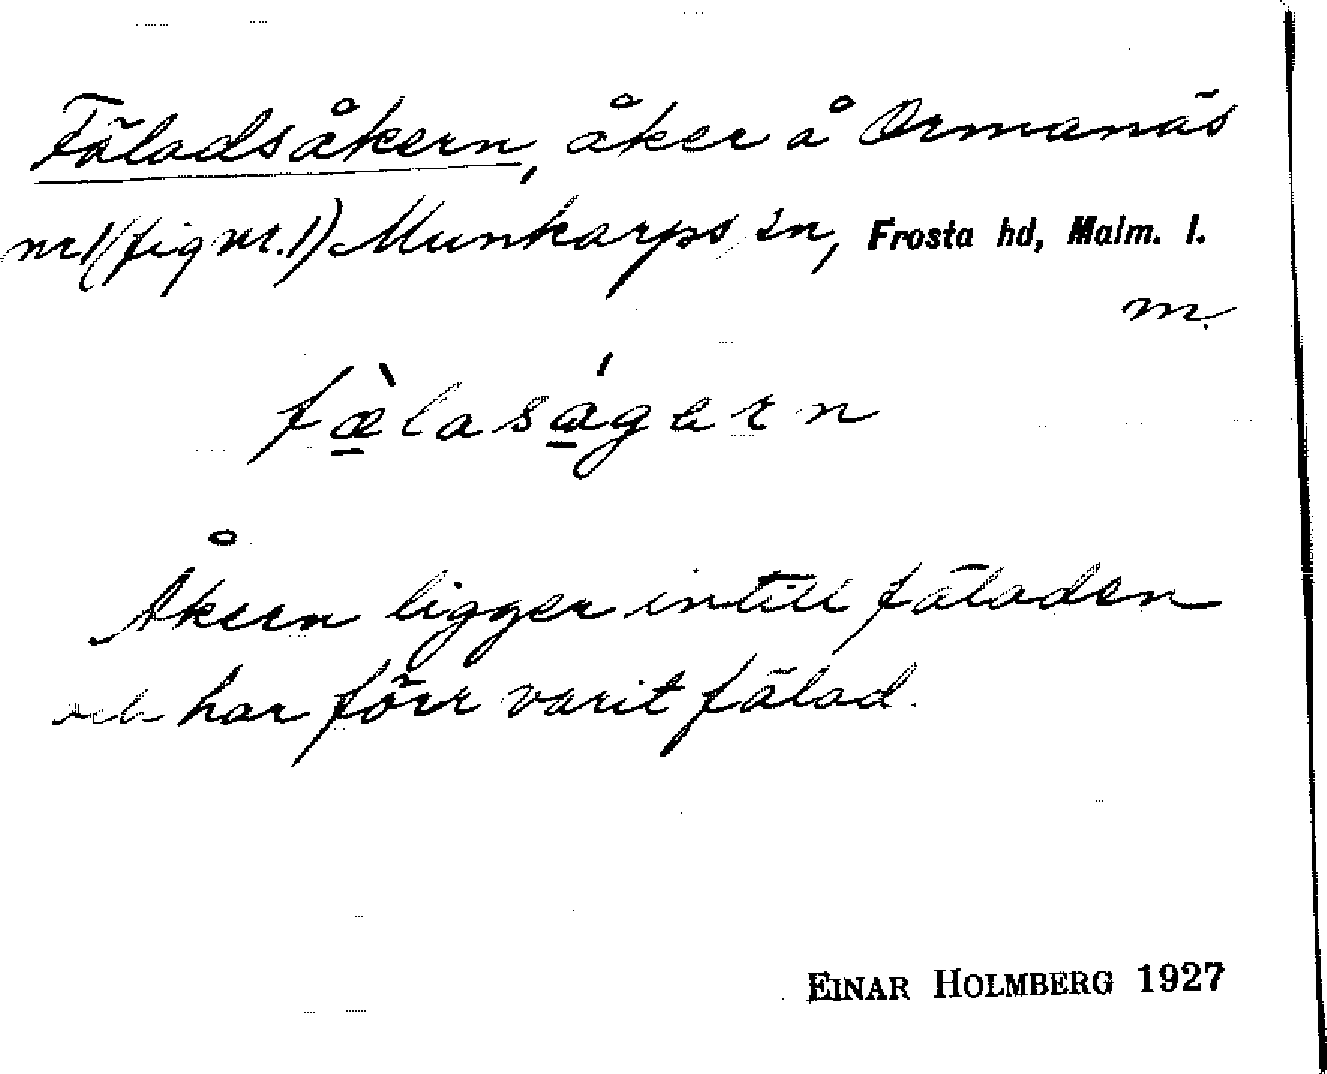 Fäladsåkern, åker å Ormanäs
nr1 (fig nr.1) Munkarps sn, Frosta hd, Malm. l.
m.
fæ̱̀lasá̱gern
Åkern ligger intill fäladen
och har förr varit fälad.
EINAR HOLMBERG 1927